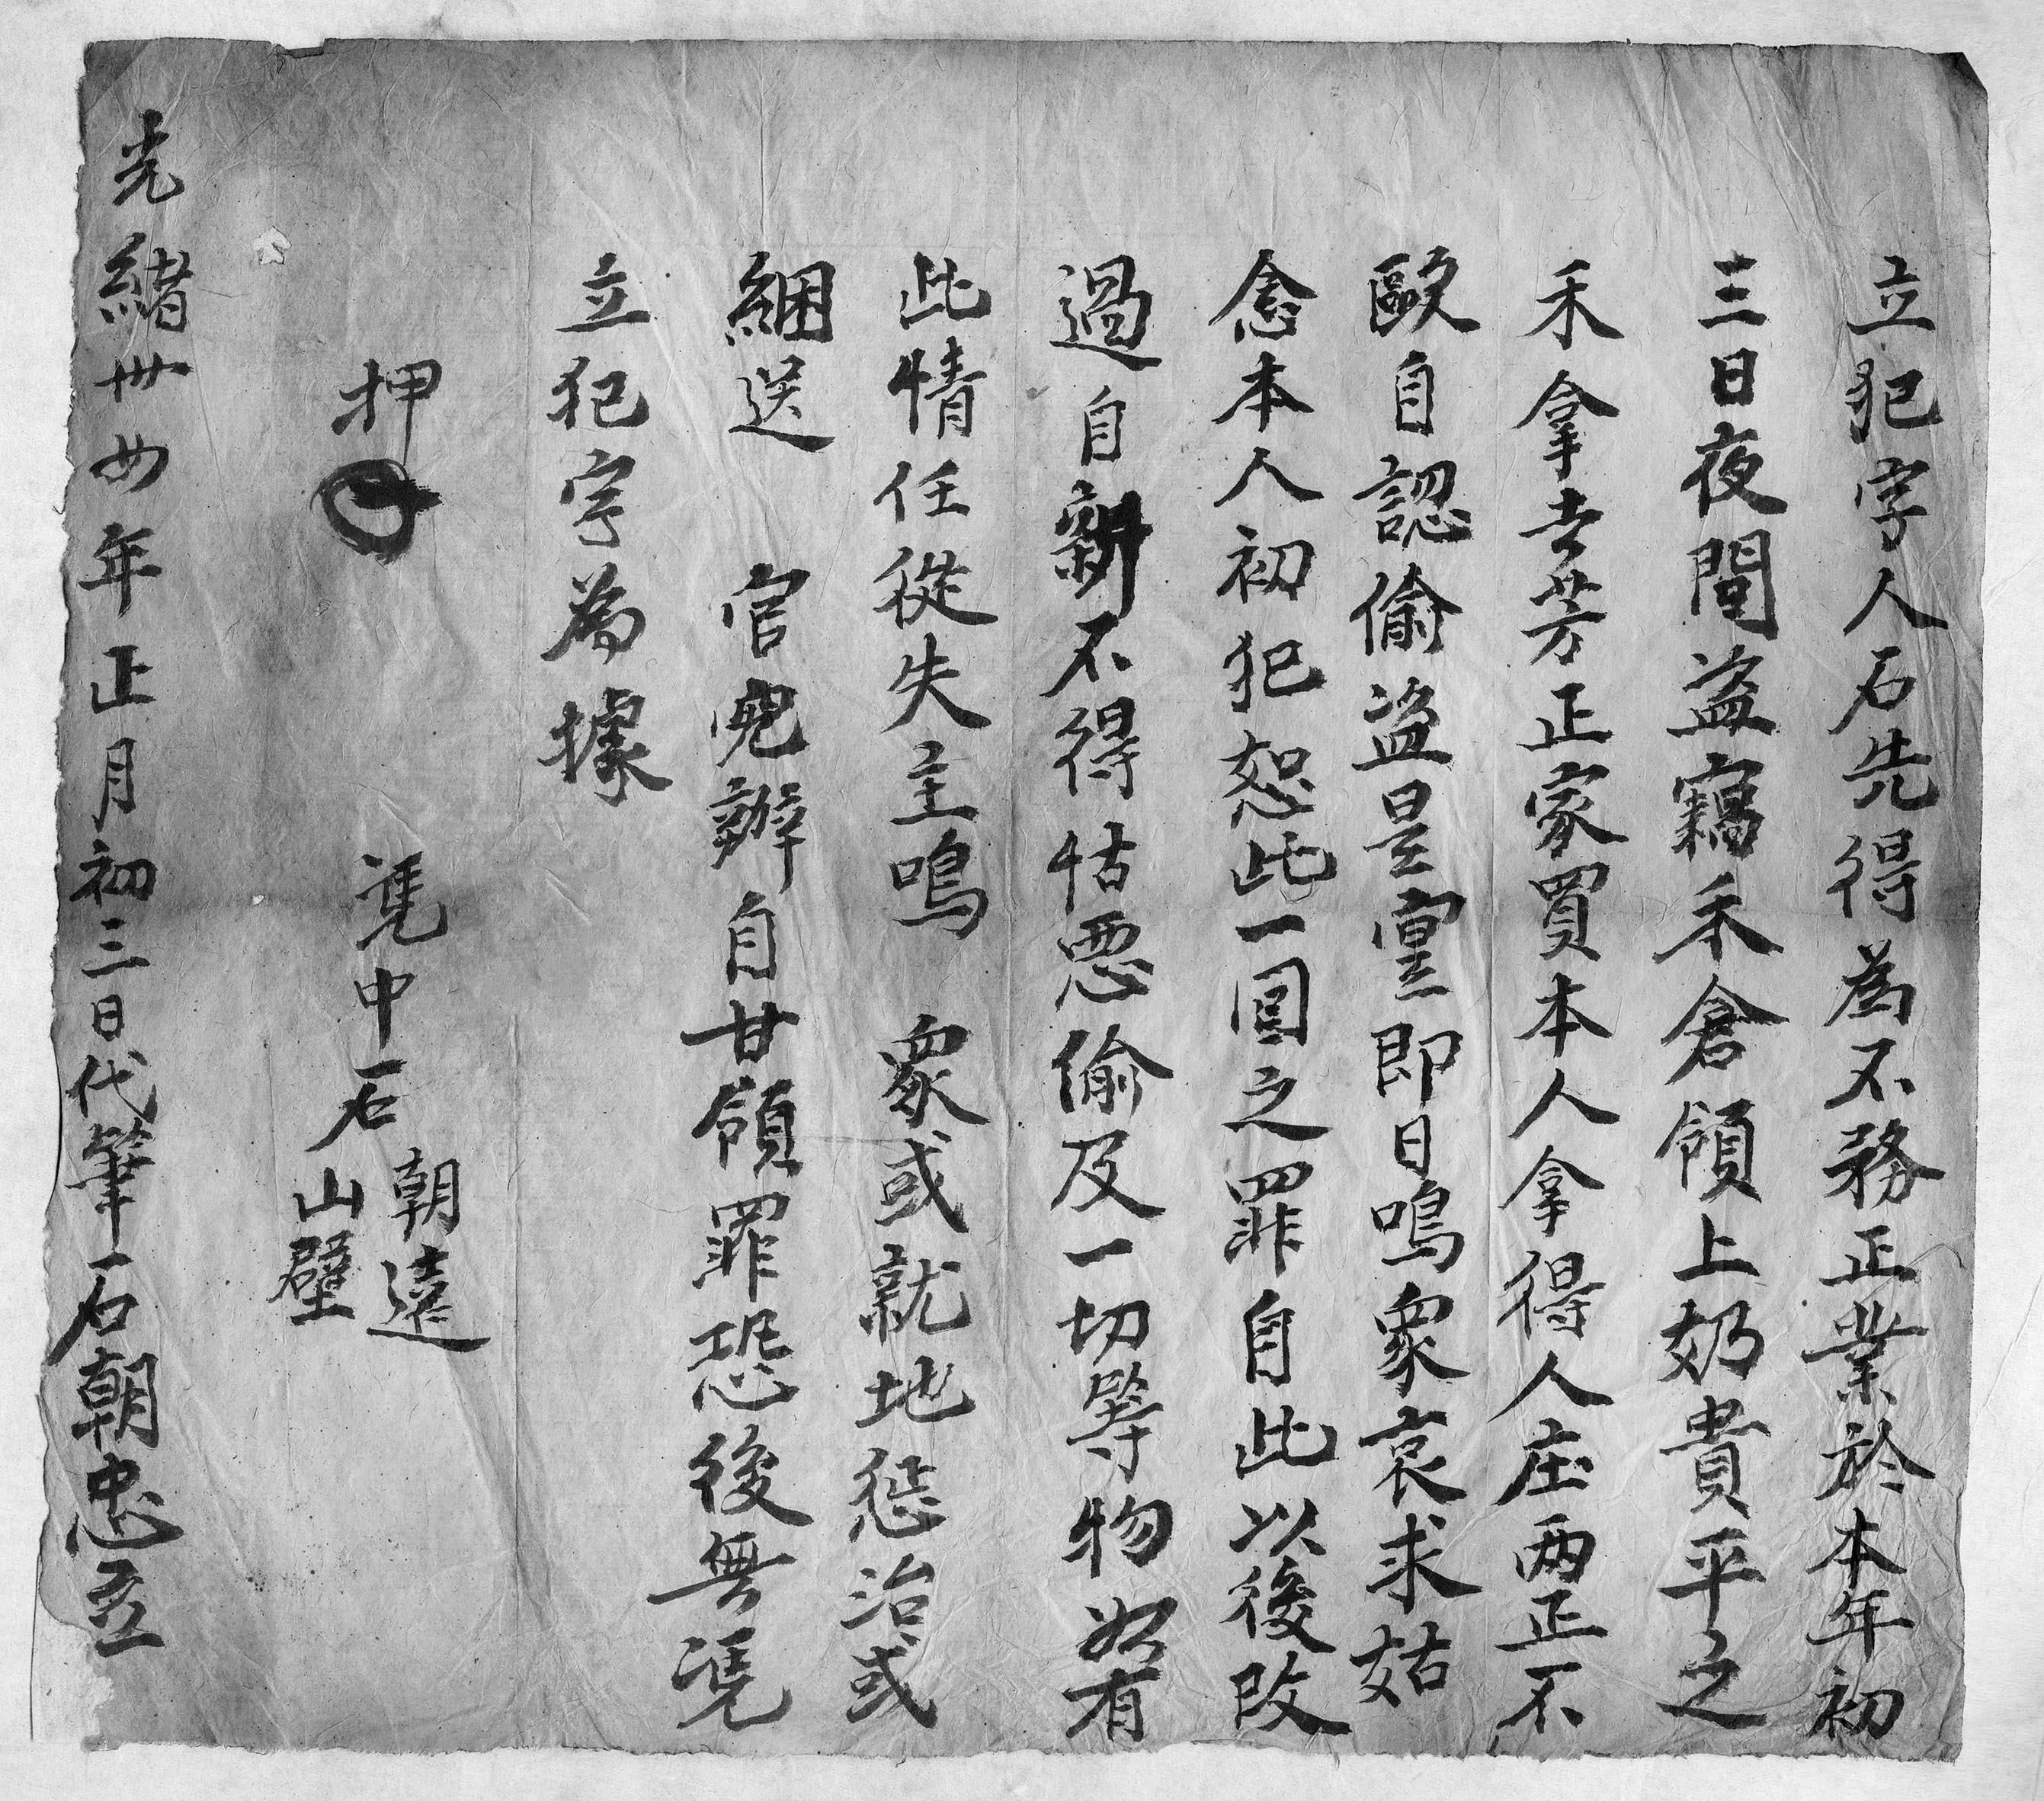 立犯字人石先得為不務正業於本年初
三日夜間盗竊禾倉領上奶貴平之
禾拿去芳正家買本人拿得人庄两正不
歐自認偷盗是寔即日鳴衆哀求姑
念本人初犯恕此一圓之罪自此以後改
過自新不得怙惡偷及一切等物如有
此情任從失主鳴 衆或就地惩治或
綑送 官究辦自甘領罪恐後無凴
立犯字為據
押 凴中石 朝遠 山壁
光緒卅四年正月初三日代筆石朝忠立